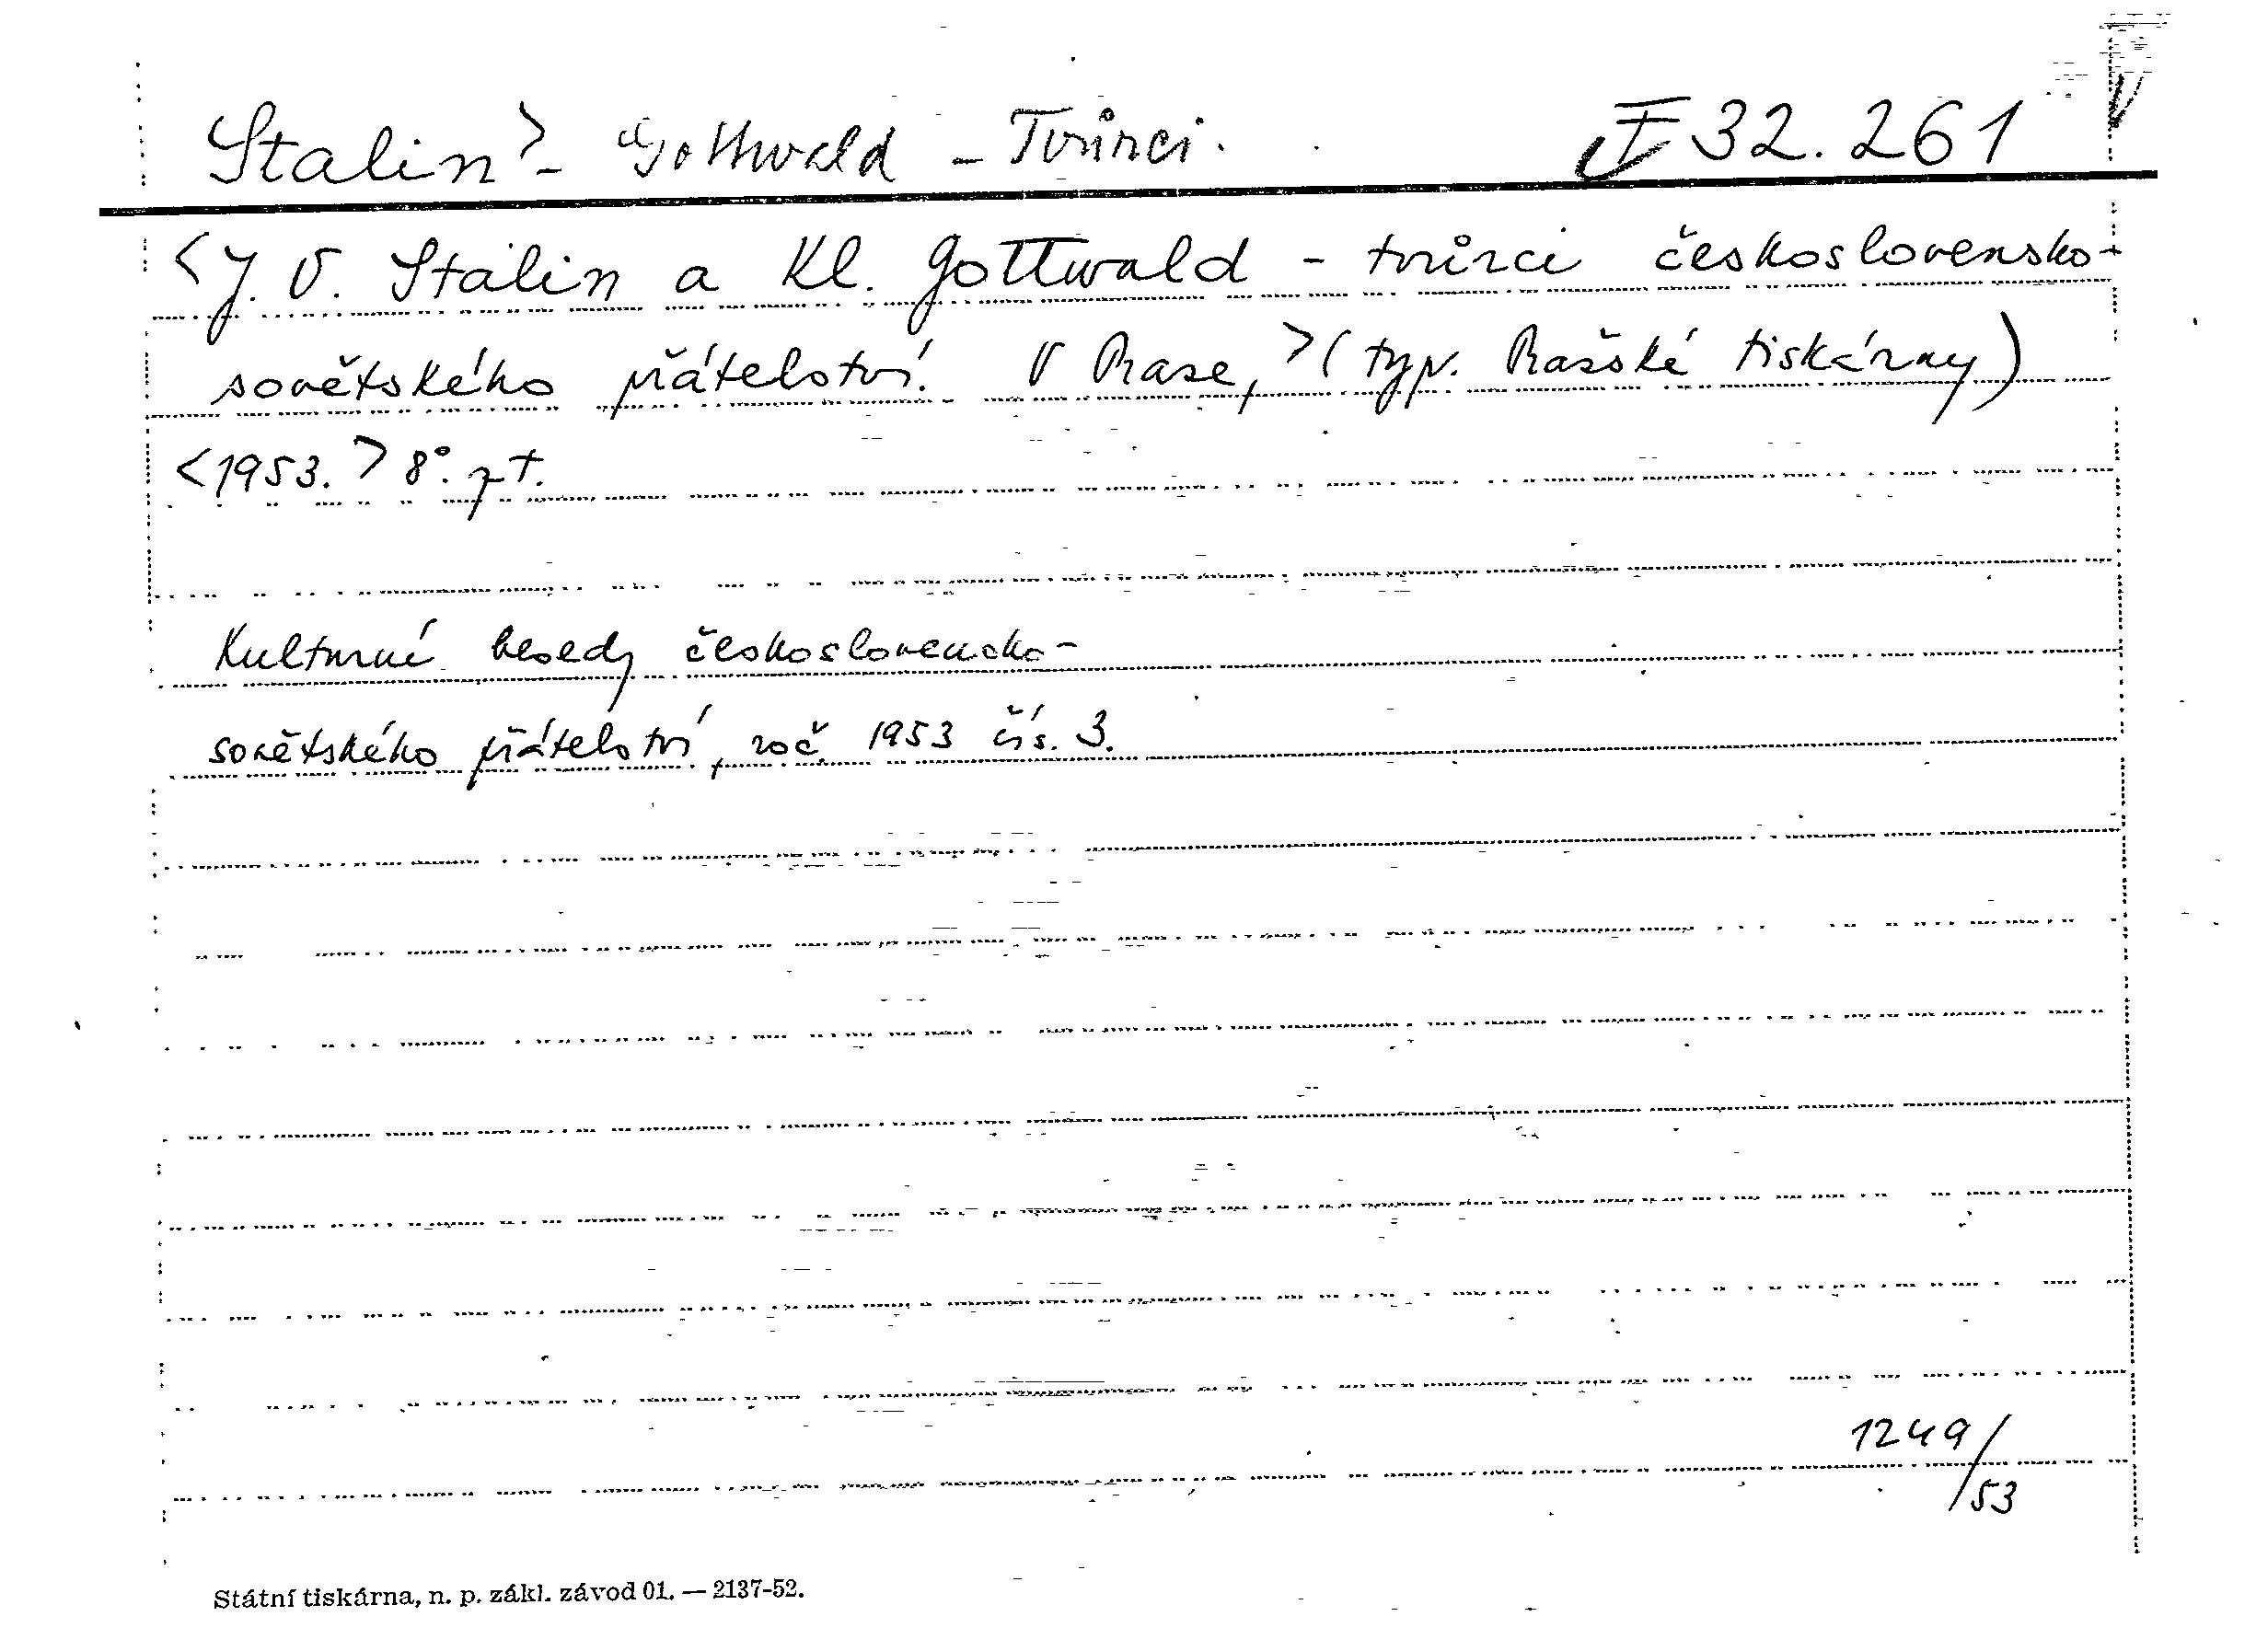 Stalin> - Gottwald - Tvůrci. I 32.261
<J. V. Stalin a Kl. Gottwald - tvůrci československo-
sovětského přátelství. V Praze,> (typ. Pražské tiskárny)
<1953.> 8°.
Kulturní besedy československo-
sovětského přátelství, roč. 1953 čís. 3.
1249/
53
Státní tiskárna, n. p. zákl. závod 01. — 2137-52.